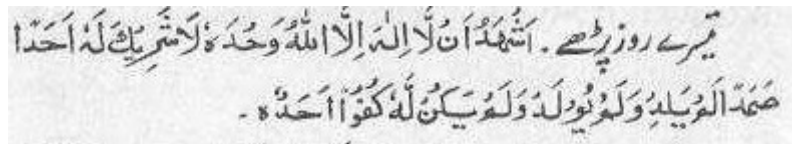 تیسرے روز پڑھے ۔ اَشْهَدُ اَنْ لَّا اِلٰهَ اِلَّا اللهُ وَحْدَهٗ لَا شَرِيْكَ لَهٗ اَحَدًا
صَمَدًا لَمْ يَلِدْ وَلَمْ يُوْلَدْ وَلَمْ يَكُنْ لَّهٗ كُفُوًا اَحَدٌ ہ ۔